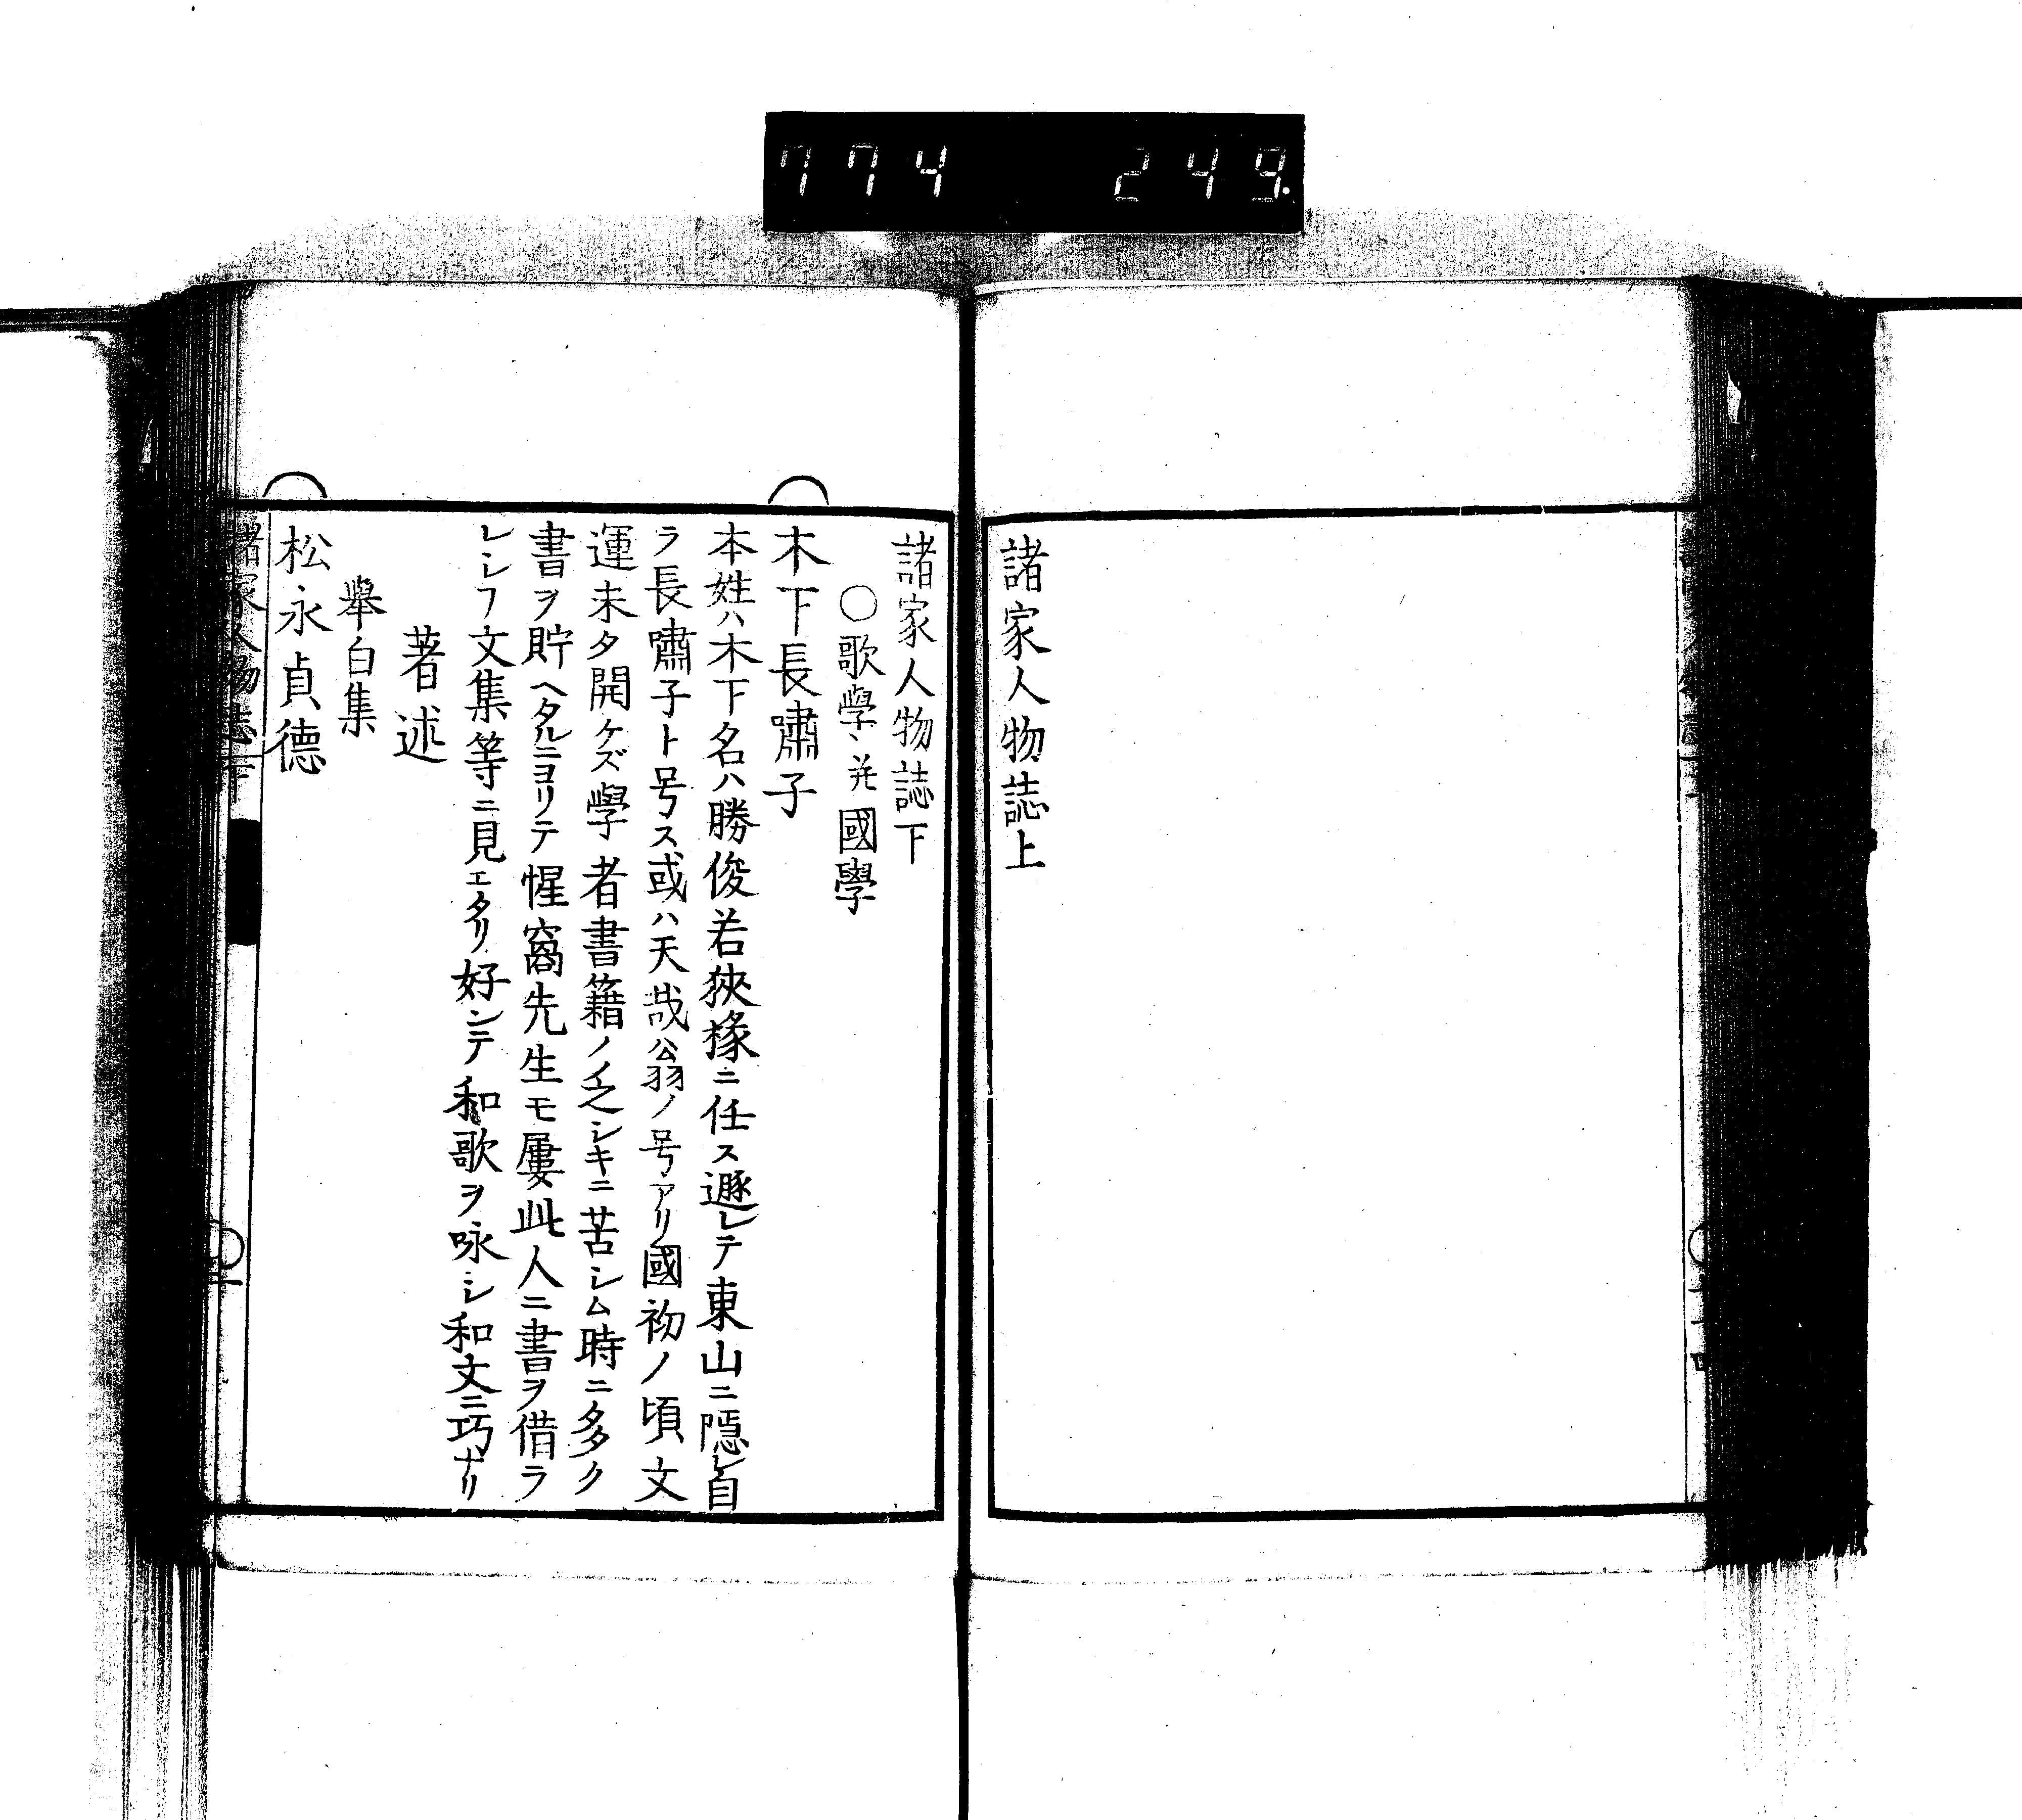 774 249.
諸家人物誌上
諸家人物誌下
○歌學並國學
木下長嘯子
本姓ハ木下名ハ勝俊若狹掾ニ任ス遯レテ東山ニ隱レ自
ラ長嘯子ト号ス或ハ天哉翁ノ号アリ國初ノ頃文
運未タ開ケズ學者書籍ノ乏シキニ苦シム時ニ多ク
書ヲ貯ヘタルニヨリテ惺窩先生モ屢此人ニ書ヲ借ラ
レシフ文集等ニ見エタリ好ンテ和歌ヲ咏シ和文ニ巧ナリ
著述
擧白集
松永貞德
諸家人物志下